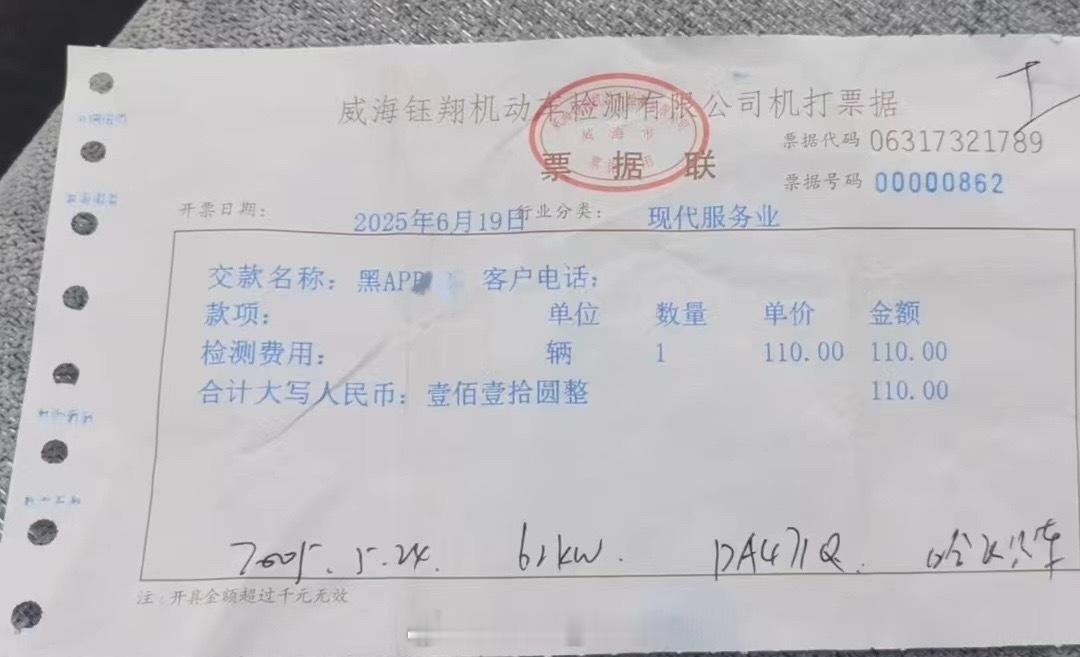 威海钰翔机动车检测有限公司机打票据
票据联
威海市
票据代码 06317321789
票据号码 00000862
开票日期: 2025年6月19日 行业分类: 现代服务业
交款名称: 黑APP 客户电话:
款项: 单位 数量 单价 金额
检测费用: 辆 1 110.00 110.00
合计大写人民币: 壹佰壹拾圆整 110.00
2005.5.24. 61kw. DA471Q.
注:开具金额超过千元无效